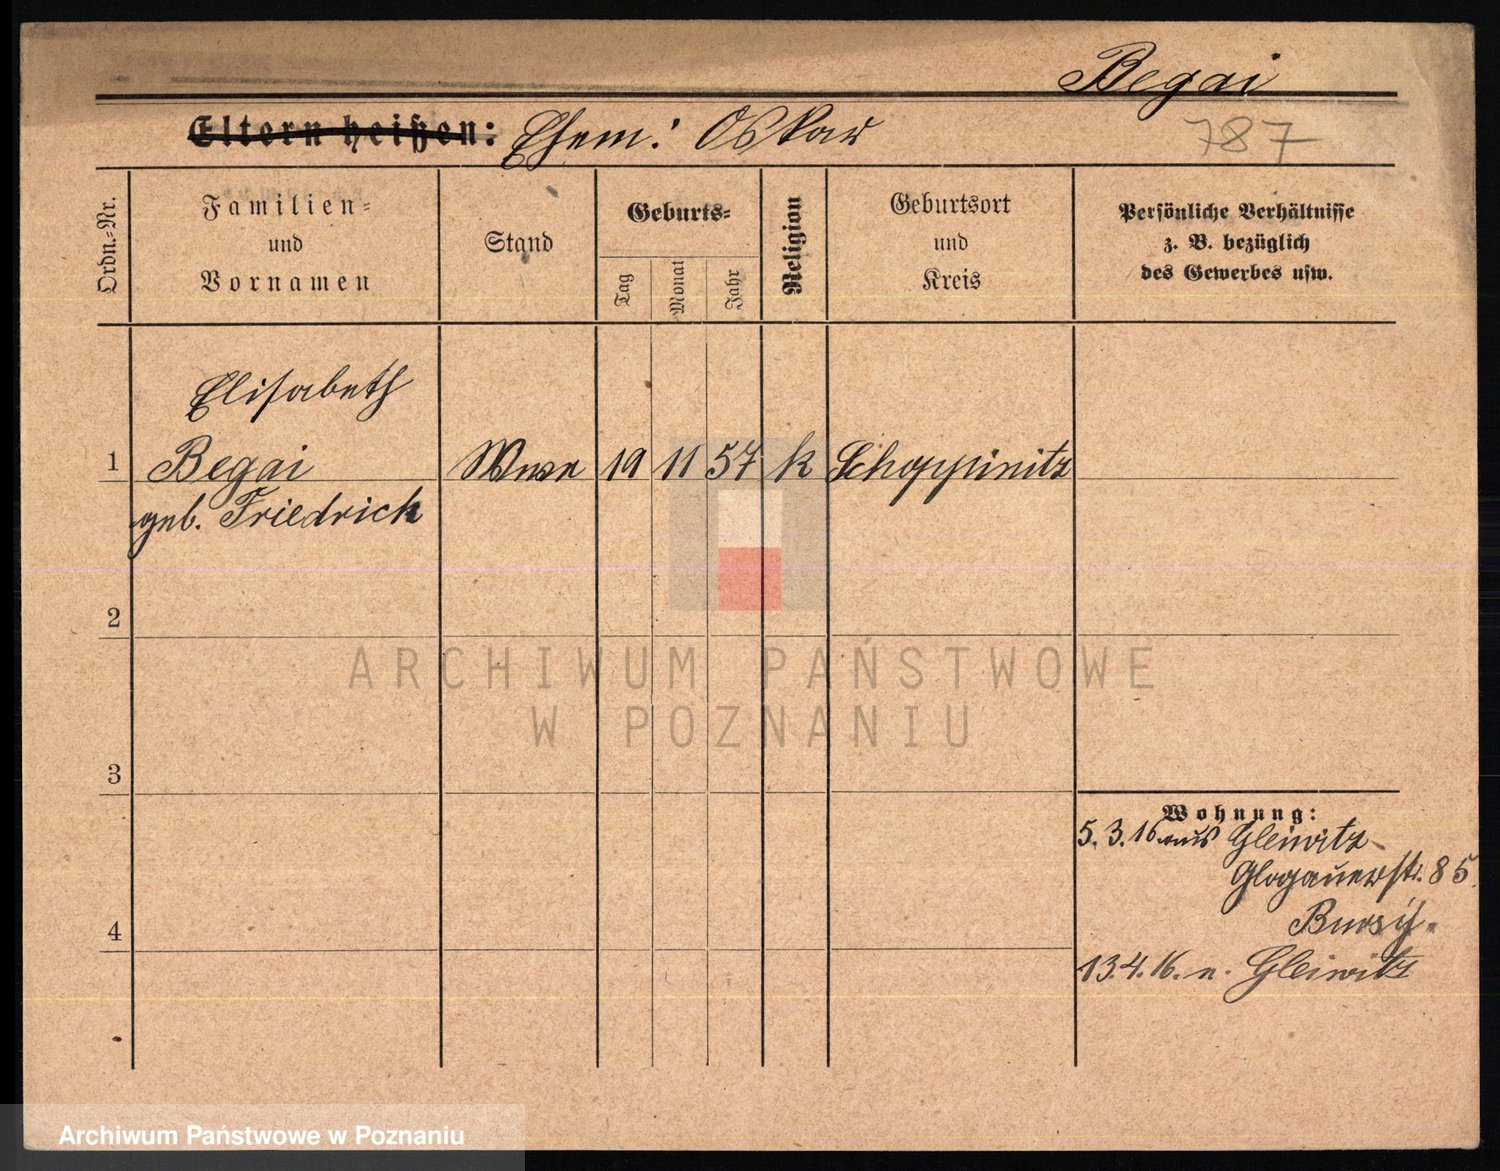 Begai
Eltern heißen: Ehem: Oskar
787
Ordn.-Nr.
Familien-
und
Vornamen
Stand
Geburts-
Tag
Monat
Jahr
Religion
Geburtsort
und
Kreis
Persönliche Verhältnisse
z. B. bezüglich
des Gewerbes usw.
Elisabeth
1 Begai Wwe 19 11 57 k Schoppinitz
geb. Friedrich
2
ARCHIWUM PAŃSTWOWE
W POZNANIU
3
Wohnung:
5.3.16 aus Gleiwitz
Glogauerstr. 85
4
13.4.16. n. Gleiwitz
Archiwum Państwowe w Poznaniu